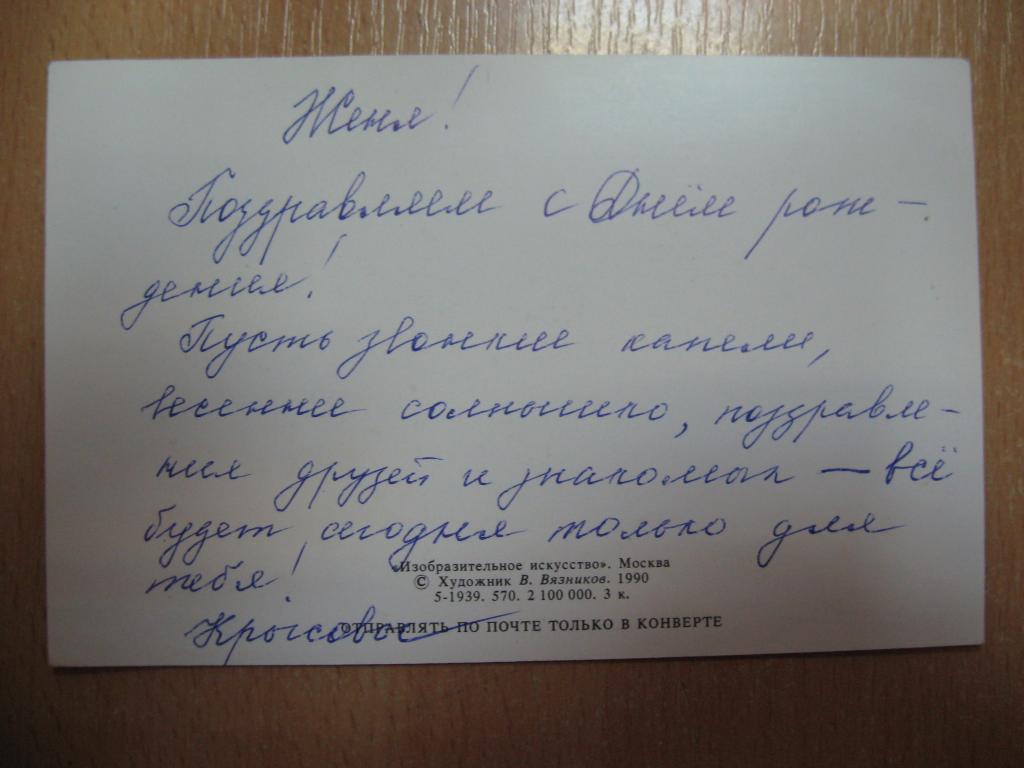 Женя!
Поздравляем с Днём рож –
дения!
Пусть звонкие капели,
весеннее солнышко, поздравле –
ния друзей и знакомых — всё
будет сегодня только для
тебя!
«Изобразительное искусство». Москва
© Художник В. Вязников. 1990
5-1939. 570. 2 100 000. 3 к.
Крысовы
ОТПРАВЛЯТЬ ПО ПОЧТЕ ТОЛЬКО В КОНВЕРТЕ